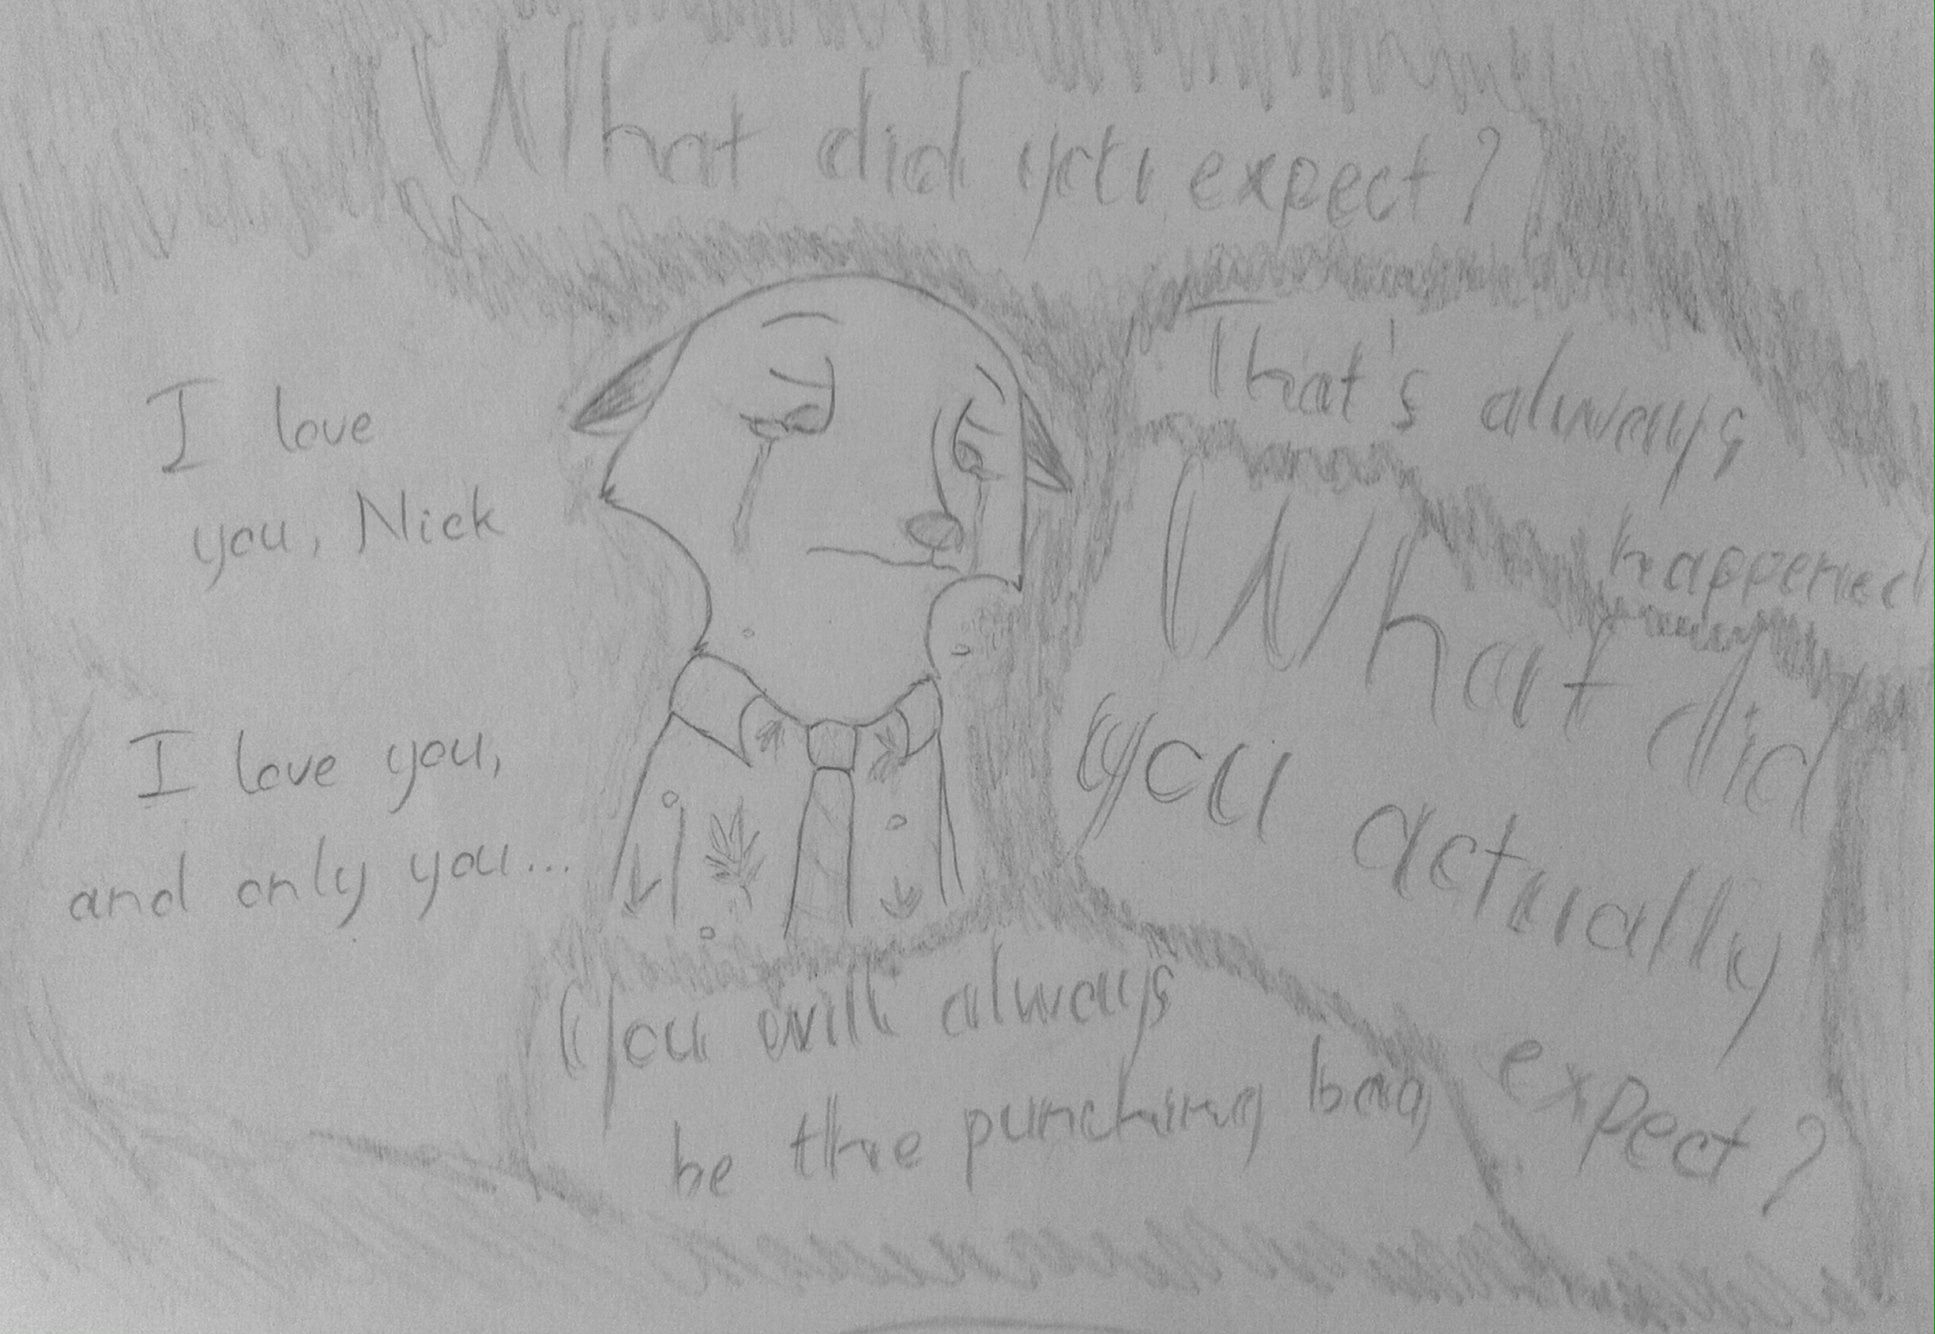 What did you expect?
That's always
happened
I love
you, Nick
What did
you actually
expect?
I love you,
and only you...
You will always
be the punching bag